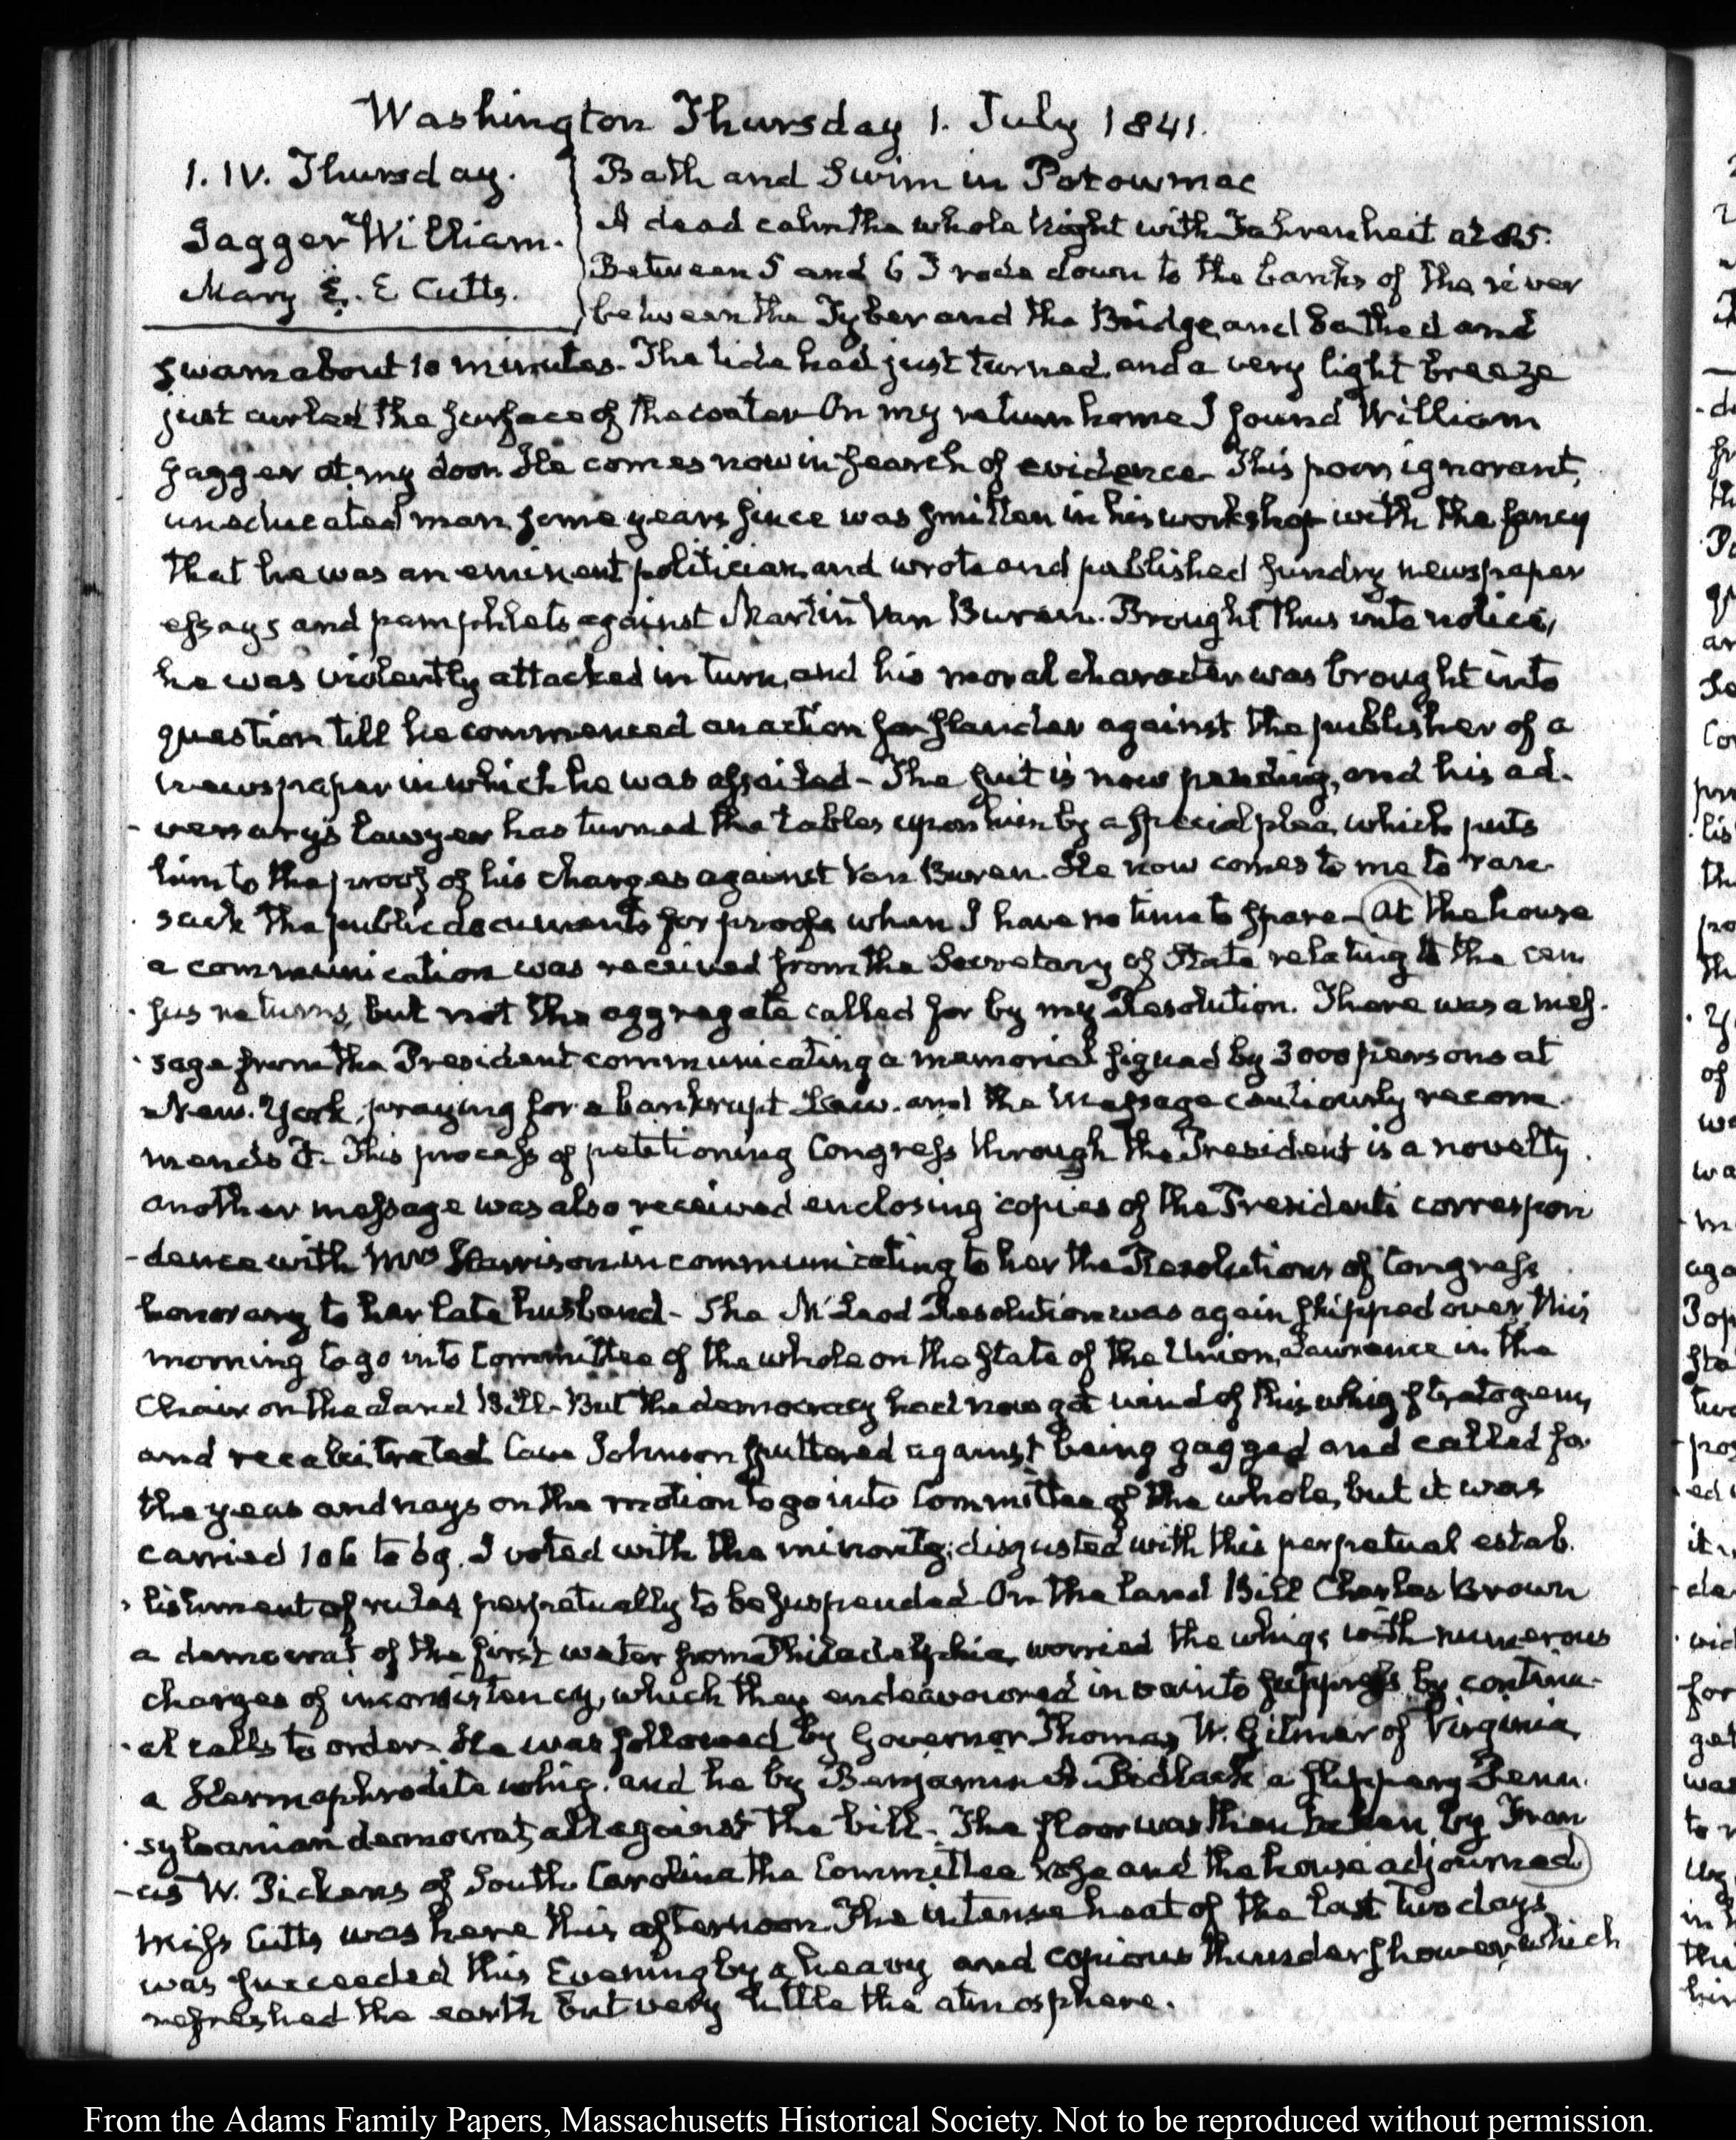 Washington Thursday 1. July 1841.
1. IV. Thursday.
Jagger William.
Mary E. E Cutts.
Bath and Swim in Potowmac
A dead calm the whole Night with Fahrenheit at 85.
Between 5 and 6 I rode down to the banks of the river
between the Tyber and the Bridge, and bathed and
swam about 10 minutes. The tide had just turned, and a very light breeze
just curled the surface of the water. On my return home I found William
Jagger at my door. He comes now in search of evidence. This poor, ignorant,
uneducated man some years since was smitten in his workshop with the fancy
that he was an eminent politician, and wrote and published sundry newspaper
essays and pamphlets against Martin Van Buren. Brought thus into notice,
he was violently attacked in turn, and his moral character was brought into
question till he commenced an action for slander against the publisher of a
newspaper in which he was assailed- The suit is now pending, and his ad-
-versary's lawyer has turned the tables upon him by a special plea, which puts
him to the proof of his charges against Van Buren. He now comes to me to ran-
sack the public documents for proofs when I have no time to spare- At the house
a communication was received from the Secretary of State relating to the cen
-sus returns, but not the aggregate called for by my Resolution. There was a mes-
-sage from the President communicating a memorial signed by 3000 persons at
New-York, praying for a bankrupt Law. and the Message cautiously recom-
mends it- This process of petitioning Congress through the President is a novelty.
another message was also received enclosing copies of the Presidents correspon
-dence with Mrs Harrison in communicating to her the Resolutions of Congress
honorary to her late husband- The McLeod Resolution was again skipped over this
morning to go into Committee of the whole on the state of the Union, Lawrence in the
Chair on the Land Bill- But the democracy had now got wind of this whig stratagem,
and recalcitrated. Cave Johnson sputtered against being gagged and called for
the yeas and nays on the motion to go into Committee of the whole, but it was
carried 106 to 69. I voted with the minority; disgusted with this perpetual estab-
-lishment of rules, perpetually to be suspended. On the Land Bill Charles Brown
a democrat of the first water from Philadelphia, worried the whigs with numerous
charges of inconsistency, which they endeavoured in vain to suppress by continu-
-al calls to order. He was followed by Governor Thomas W. Gilmer of Virginia,
a Hermaphrodite whig. and he by Benjamin A. Bidlack a slippery Penn-
-sylvanian democrat, all against the bill- The floor was then taken by Fran
-cis W. Pickens of South Carolina the Committee rose and the house adjourned
Miss Cutts was here this afternoon. The intense heat of the last two days
was succeeded this Evening by a heavy and copious thunder shower, which
refreshed the earth but very little the atmosphere.
From the Adams Family Papers, Massachusetts Historical Society. Not to be reproduced without permission.